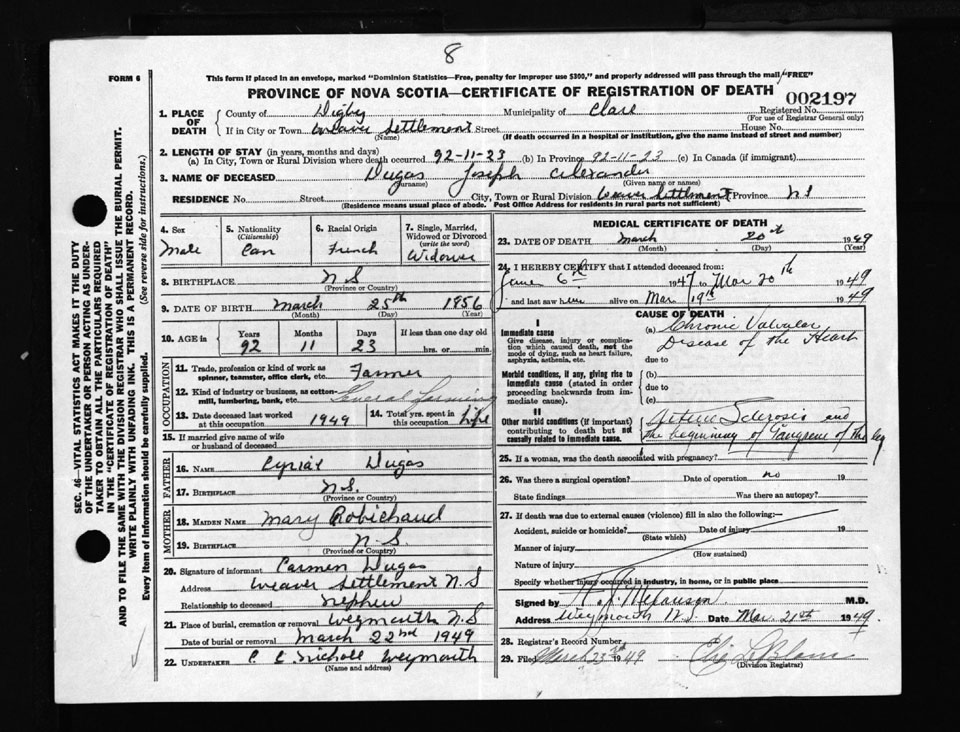 8
FORM 6
This form if placed in an envelope, marked "Dominion Statistics—Free, penalty for improper use $300," and properly addressed will pass through the mail "FREE"
PROVINCE OF NOVA SCOTIA—CERTIFICATE OF REGISTRATION OF DEATH
002197
1. PLACE OF DEATH
County of Digby Municipality of Clare Registered No.
(For use of Registrar General only)
If in City or Town Weaver Settlement Street House No.
(Name) (If death occurred in a hospital or institution, give the name instead of street and number)
2. LENGTH OF STAY (in years, months and days)
(a) In City, Town or Rural Division where death occurred 92-11-23 (b) In Province 92-11-23 (c) In Canada (if immigrant)
3. NAME OF DECEASED Dugas Joseph Alexander
(Surname) (Given name or names)
RESIDENCE No. Street City, Town or Rural Division Weaver Settlement Province N S
(Residence means usual place of abode. Post Office Address for residents in rural parts not sufficient)
4. Sex
Male
5. Nationality
(Citizenship)
Can
6. Racial Origin
French
7. Single, Married, Widowed or Divorced
(write the word)
Widower
8. BIRTHPLACE N S
(Province or Country)
9. DATE OF BIRTH March 25th 1856
(Month) (Day) (Year)
10. AGE in Years Months Days If less than one day
92 11 23 hrs. or min.
OCCUPATION
11. Trade, profession or kind of work as spinner, teamster, office clerk, etc. Farmer
12. Kind of industry or business, as cotton-mill, lumbering, bank, etc. General farming
13. Date deceased last worked at this occupation 1949
14. Total yrs. spent in this occupation life
15. If married give name of wife or husband of deceased
FATHER
16. NAME Cyriac Dugas
17. BIRTHPLACE N.S.
(Province or Country)
MOTHER
18. MAIDEN NAME Mary Robichaud
19. BIRTHPLACE N-S.
(Province or Country)
20. Signature of informant Carmen Dugas
Address Weaver Settlement N.S
Relationship to deceased nephew
21. Place of burial, cremation or removal Weymouth N.S
Date of burial or removal March 22nd 1949
22. UNDERTAKER Weymouth
(Name and address)
MEDICAL CERTIFICATE OF DEATH
23. DATE OF DEATH March 20th 1949
(Month) (Day) (Year)
24. I HEREBY CERTIFY that I attended deceased from:
June 6th 1947 to Mar 20th 1949
and last saw him alive on Mar 19th 1949
CAUSE OF DEATH
I
Immediate cause
Give disease, injury or complication which caused death, not the mode of dying, such as heart failure, asphyxia, asthenia, etc.
(a) Chronic Valvular
Disease of the Heart
due to
Morbid conditions, if any, giving rise to immediate cause (stated in order proceeding backwards from immediate cause).
(b)
due to
(c)
II
Other morbid conditions (if important) contributing to death but not causally related to immediate cause.
Arterio Sclerosis and
the beginning of Gangrene of the leg
25. If a woman, was the death associated with pregnancy?
26. Was there a surgical operation? Date of operation no 19
State findings Was there an autopsy?
27. If death was due to external causes (violence) fill in also the following:—
Accident, suicide or homicide? Date of injury 19
(State which)
Manner of injury
(How sustained)
Nature of injury
Specify whether injury occurred in industry, in home, or in public place
Signed by Melanson M.D.
Address Weymouth N.S. Date Mar. 21st 1949
28. Registrar's Record Number
29. Filed March 23rd 1949
(Division Registrar)
SEC. 46—VITAL STATISTICS ACT MAKES IT THE DUTY
OF THE UNDERTAKER OR PERSON ACTING AS UNDER-
TAKER TO OBTAIN ALL THE PARTICULARS REQUIRED
IN THE "CERTIFICATE OF REGISTRATION OF DEATH"
AND TO FILE THE SAME WITH THE DIVISION REGISTRAR WHO SHALL ISSUE THE BURIAL PERMIT.
WRITE PLAINLY WITH UNFADING INK. THIS IS A PERMANENT RECORD.
Every item of Information should be carefully supplied. (See reverse side for instructions.)